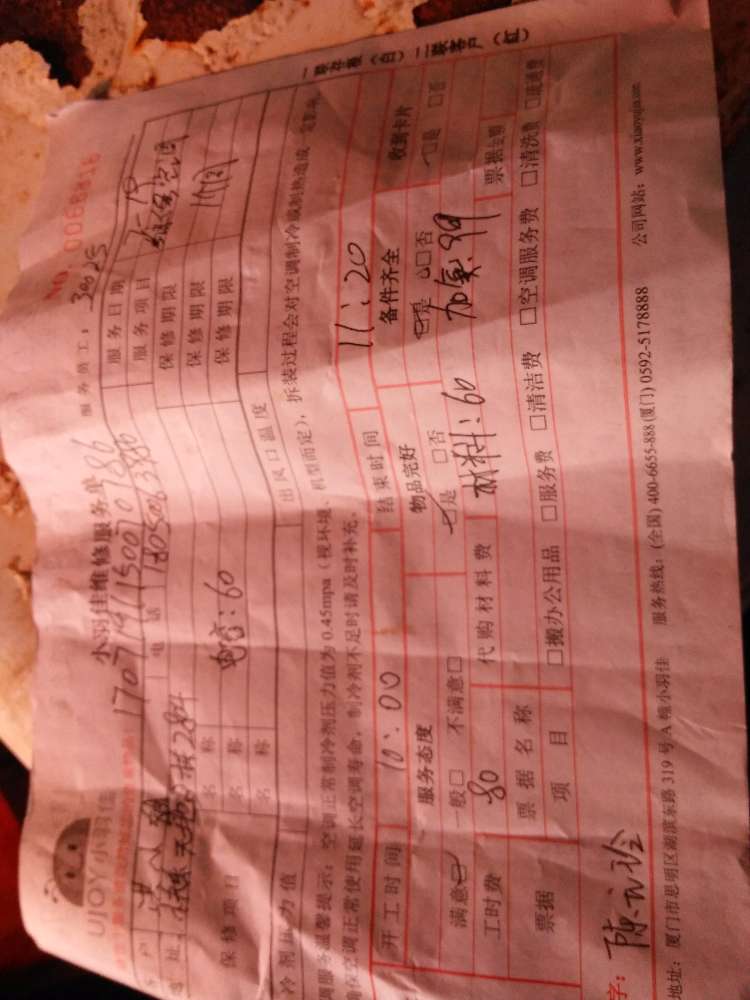 UJOY小羽佳
小羽佳维修服务单
NO 0068816
服务员工： 30025
1707191150070786
电话
服务日期 7-19
服务项目 维保空调
保修项目 名称 电容：60 保修期限 1个月
名称 保修期限
名称 保修期限
冷剂压力值 出风口温度
调服务温馨提示：空调正常制冷剂压力值为0.45mpa（视环境、机型而定），拆装过程会对空调制冷或制热造成
确保空调正常使用延长空调寿命，制冷剂不足时请及时补充。
开工时间 10：00 结束时间 11：20
服务态度 物品完好 备件齐全 收到卡片
满意□ 一般□ 不满意□ □是 □否 □是 □否 □是 □否
工时费 80 代购材料费 材料：60 加氟：99
票据 票据名称 票据金额
项目 □搬办公用品 □服务费 □清洁费 □空调服务费 □清洗费 □疏通费
一联存根（白）二联客户（红）
字：
地址：厦门市思明区湖滨东路319号A栋小羽佳 服务热线：(全国) 400-6655-888 (厦门) 0592-5178888 公司网站：www.xiaoyujia.com